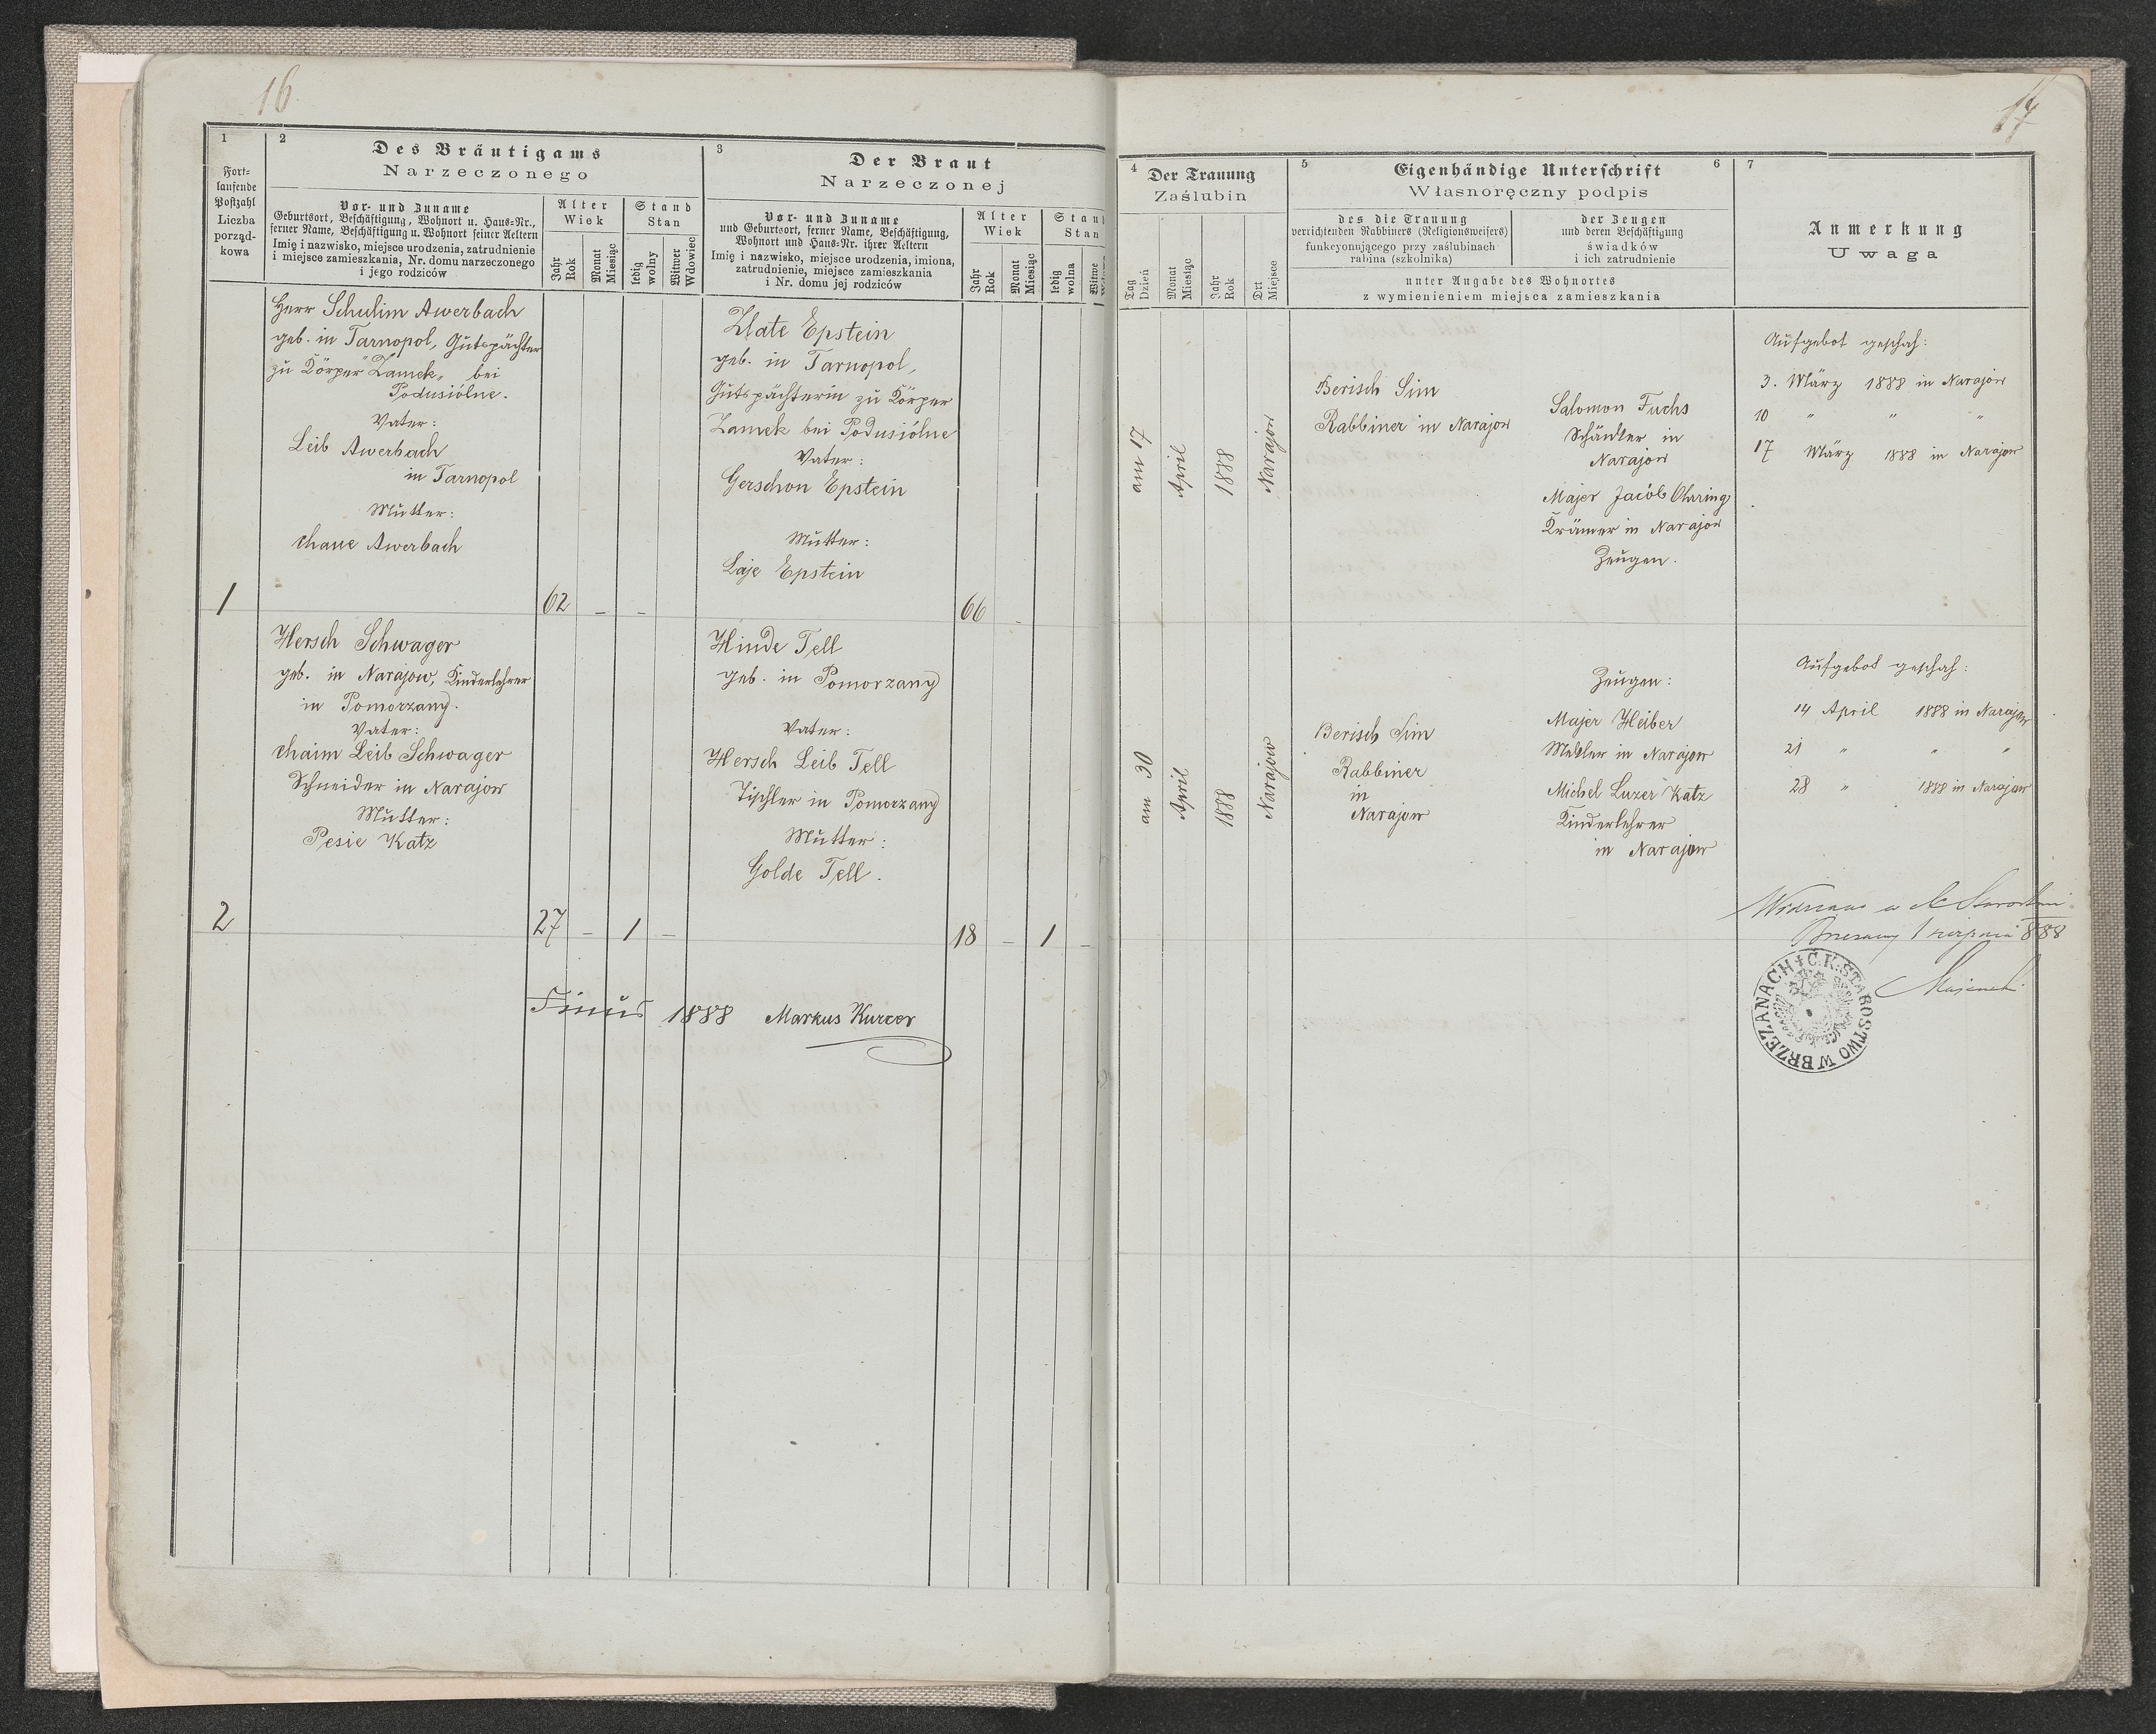 16
17
1
Fort-
laufende
Postzahl
Liczba
porząd-
kowa
2
Des Bräutigams
Narzeczonego
Vor- und Zuname
Geburtsort, Beschäftigung, Wohnort u. Haus-Nr.,
ferner Name, Beschäftigung u. Wohnort seiner Aeltern
Imię i nazwisko, miejsce urodzenia, zatrudnienie
i miejsce zamieszkania, Nr. domu narzeczonego
i jego rodziców
Alter
Wiek
Jahr
Rok
Monat
Miesiąc
Stand
Stan
ledig
wolny
Witwer
Wdowiec
3
Der Braut
Narzeczonej
Vor- und Zuname
und Geburtsort, ferner Name, Beschäftigung,
Wohnort und Haus-Nr. ihrer Aeltern
Imię i nazwisko, miejsce urodzenia, imiona,
zatrudnienie, miejsce zamieszkania
i Nr. domu jej rodziców
Alter
Wiek
Jahr
Rok
Monat
Miesiąc
Stand
Stan
ledig
wolna
Witwe
4
Der Trauung
Zaślubin
Tag
Dzień
Monat
Miesiąc
Jahr
Rok
Ort
Miejsce
5
Eigenhändige Unterschrift
Własnoręczny podpis
6
des die Trauung
verrichtenden Rabbiners (Religionsweisers)
funkcyonującego przy zaślubinach
rabina (szkolnika)
der Zeugen
und deren Beschäftigung
świadków
i ich zatrudnienie
unter Angabe des Wohnortes
z wymienieniem miejsca zamieszkania
7
Anmerkung
Uwaga
1
Herr Schulim Awerbach
geb. in Tarnopol, Gutspächter
zu Körper "Zamek" bei
Podusiólne.
Vater:
Leib Awerbach
in Tarnopol
Mutter:
Chane Awerbach
62 - -
Zlate Epstein
geb. in Tarnopol,
Gutspächterin zu Körper
Zamek bei Podusiólne
Vater:
Gerschon Epstein
Mutter:
Laje Epstein
66 -
am 17
April
1888
Narajow
Berisch Sim
Rabbiner in Narajow
Salomon Fuchs
Schänker in
Narajow
Majer Jacób Ohring
Krämer in Narajow
Zeugen.
Aufgebot geschah:
3. März 1888 in Narajow
10 " " "
17 März 1888 in Narajow
2
Hersch Schwager
geb. in Narajow, Kinderlehrer
in Pomorzany.
Vater:
Chaim Leib Schwager
Schneider in Narajow
Mutter:
Pesie Katz
27 - 1 -
Hinde Tell
geb. in Pomorzany
Vater:
Hersch Leib Tell
Tischler in Pomorzany
Mutter:
Golde Tell.
18 - 1 -
am 30
April
1888
Narajow
Berisch Sim
Rabbiner
in
Narajow
Zeugen:
Majer Heiber
Mekler in Narajow
Michel Luzer Katz
Kinderlehrer
in Narajow
Aufgebot geschah:
14 April 1888 in Narajow
21 " " "
28 " 1888 in Narajow
Widziano w
1 sierpnia 888
C.K. STAROSTWO W BRZEZANACH
1888 Markus Kurzer